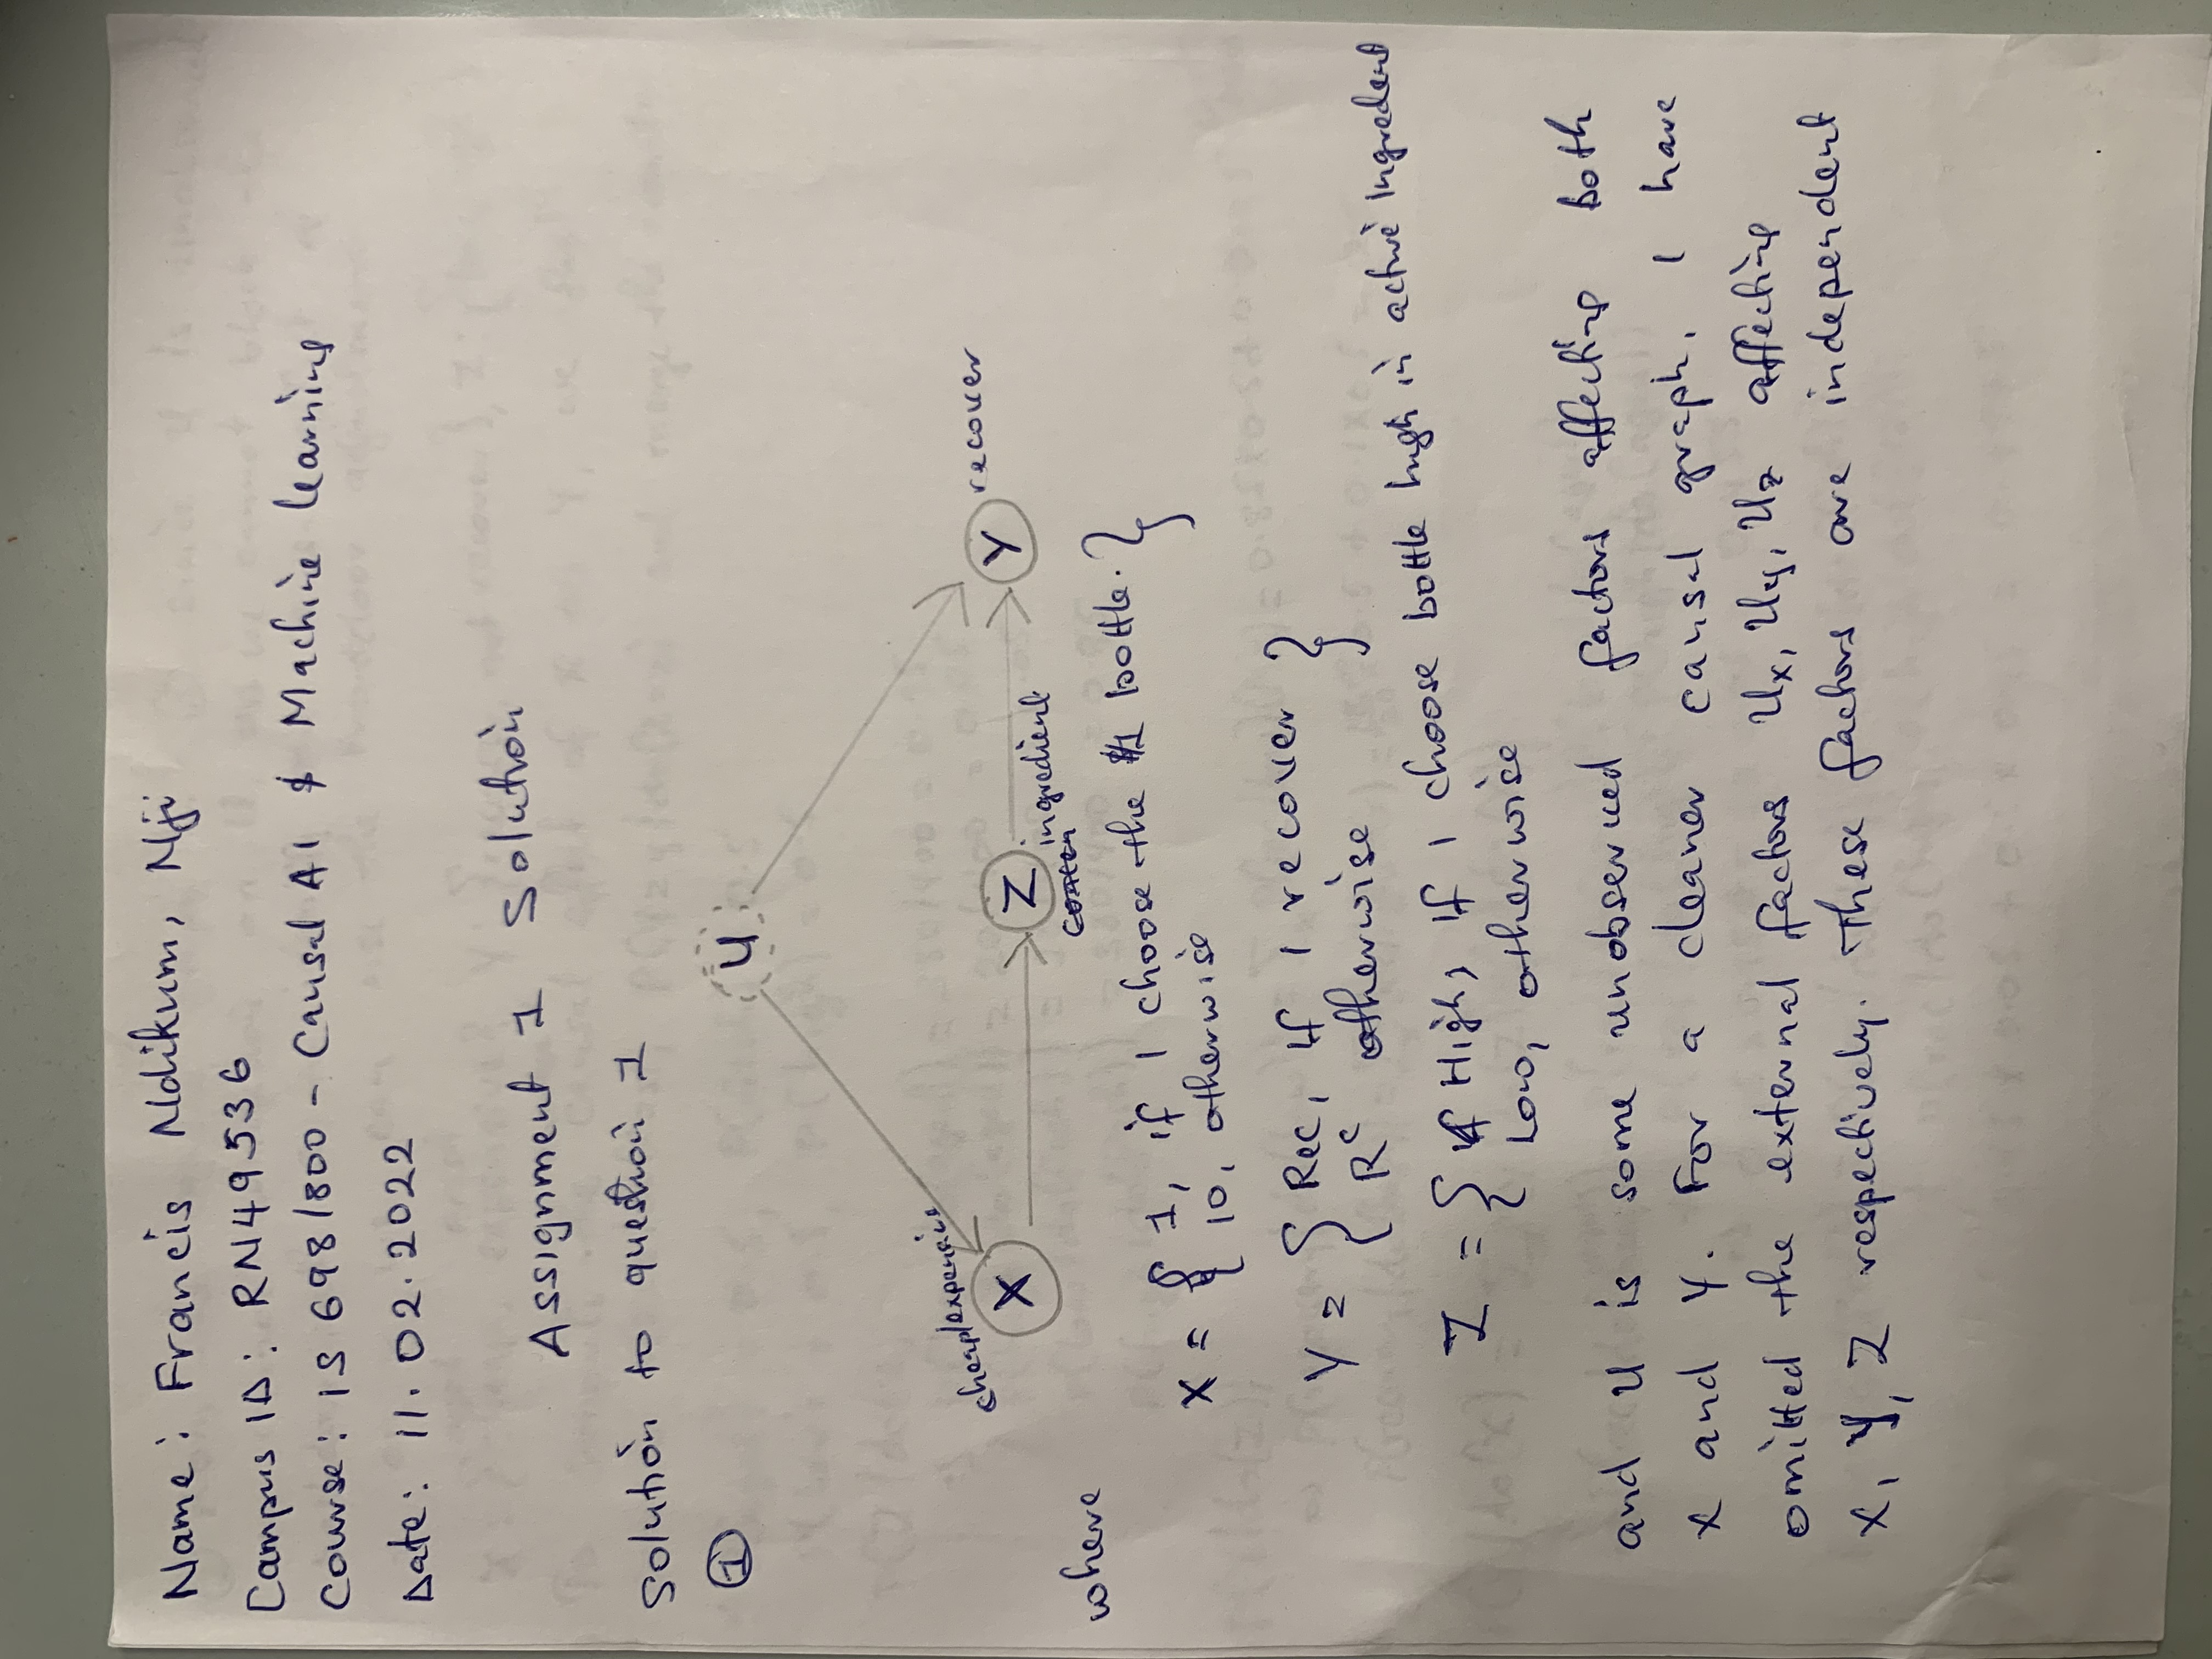 Name: Francis Ndikum, Nji
Campus ID: RN49536
Course: IS 698/800 - Causal AI & Machine learning
Date: 11.02.2022
Assignment 1 Solution
Solution to question 1
①
U
cheap/expensive
X
Z
ingredient
Y
recover
where
X = { 1, if I choose the $1 bottle. }
10, otherwise
Y = { Rec, if I recover }
R^c otherwise
Z = { High, if I choose bottle high in active ingredent
Low, otherwise
and U is some unobserved factors affecting both
X and Y. For a cleaner causal graph, I have
omitted the external factors Ux, Uy, Uz affecting
X, Y, Z respectively. These factors are independent